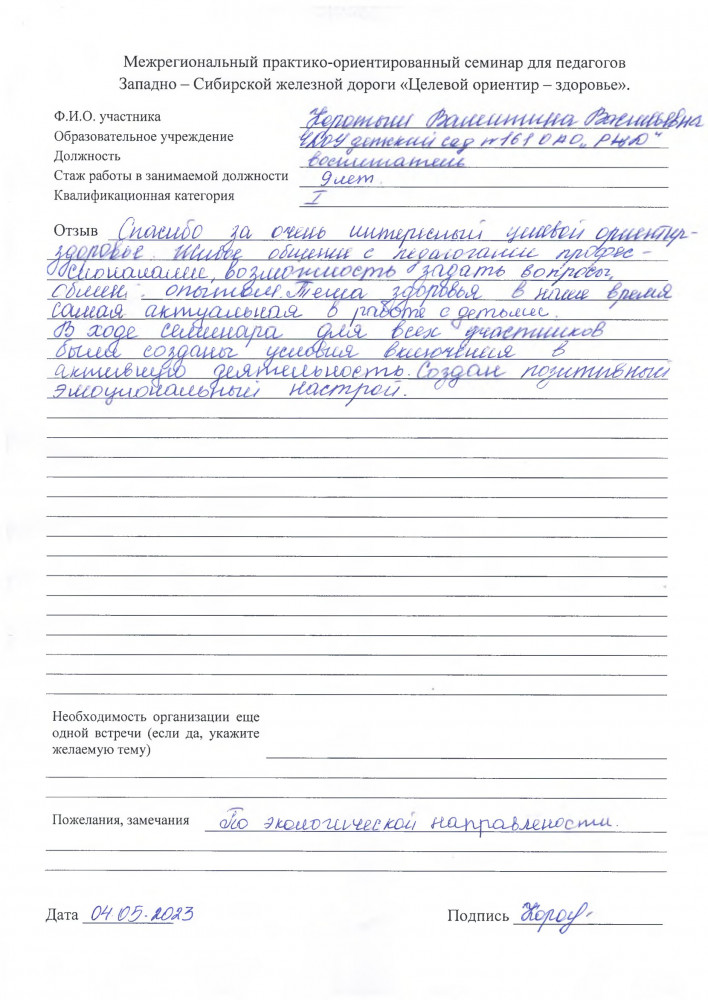 Межрегиональный практико-ориентированный семинар для педагогов
Западно – Сибирской железной дороги «Целевой ориентир – здоровье».
Ф.И.О. участника Валентина Васильевна
Образовательное учреждение ЧДОУ детский сад №161 ОАО „РЖД“
Должность воспитатель
Стаж работы в занимаемой должности 9 лет.
Квалификационная категория I
Отзыв Спасибо за очень интересный целевой ориентир-
здоровье. Живое общение с педагогами профес-
сионалами, возможность задать вопросы,
обмен опытом. Тема здоровья в наше время
самая актуальная в работе с детьми.
В ходе семинара для всех участников
были созданы условия включения в
активную деятельность. Создан позитивный
эмоциональный настрой.
Необходимость организации еще
одной встречи (если да, укажите
желаемую тему)
Пожелания, замечания По экологической направлености.
Дата 04.05.2023 Подпись